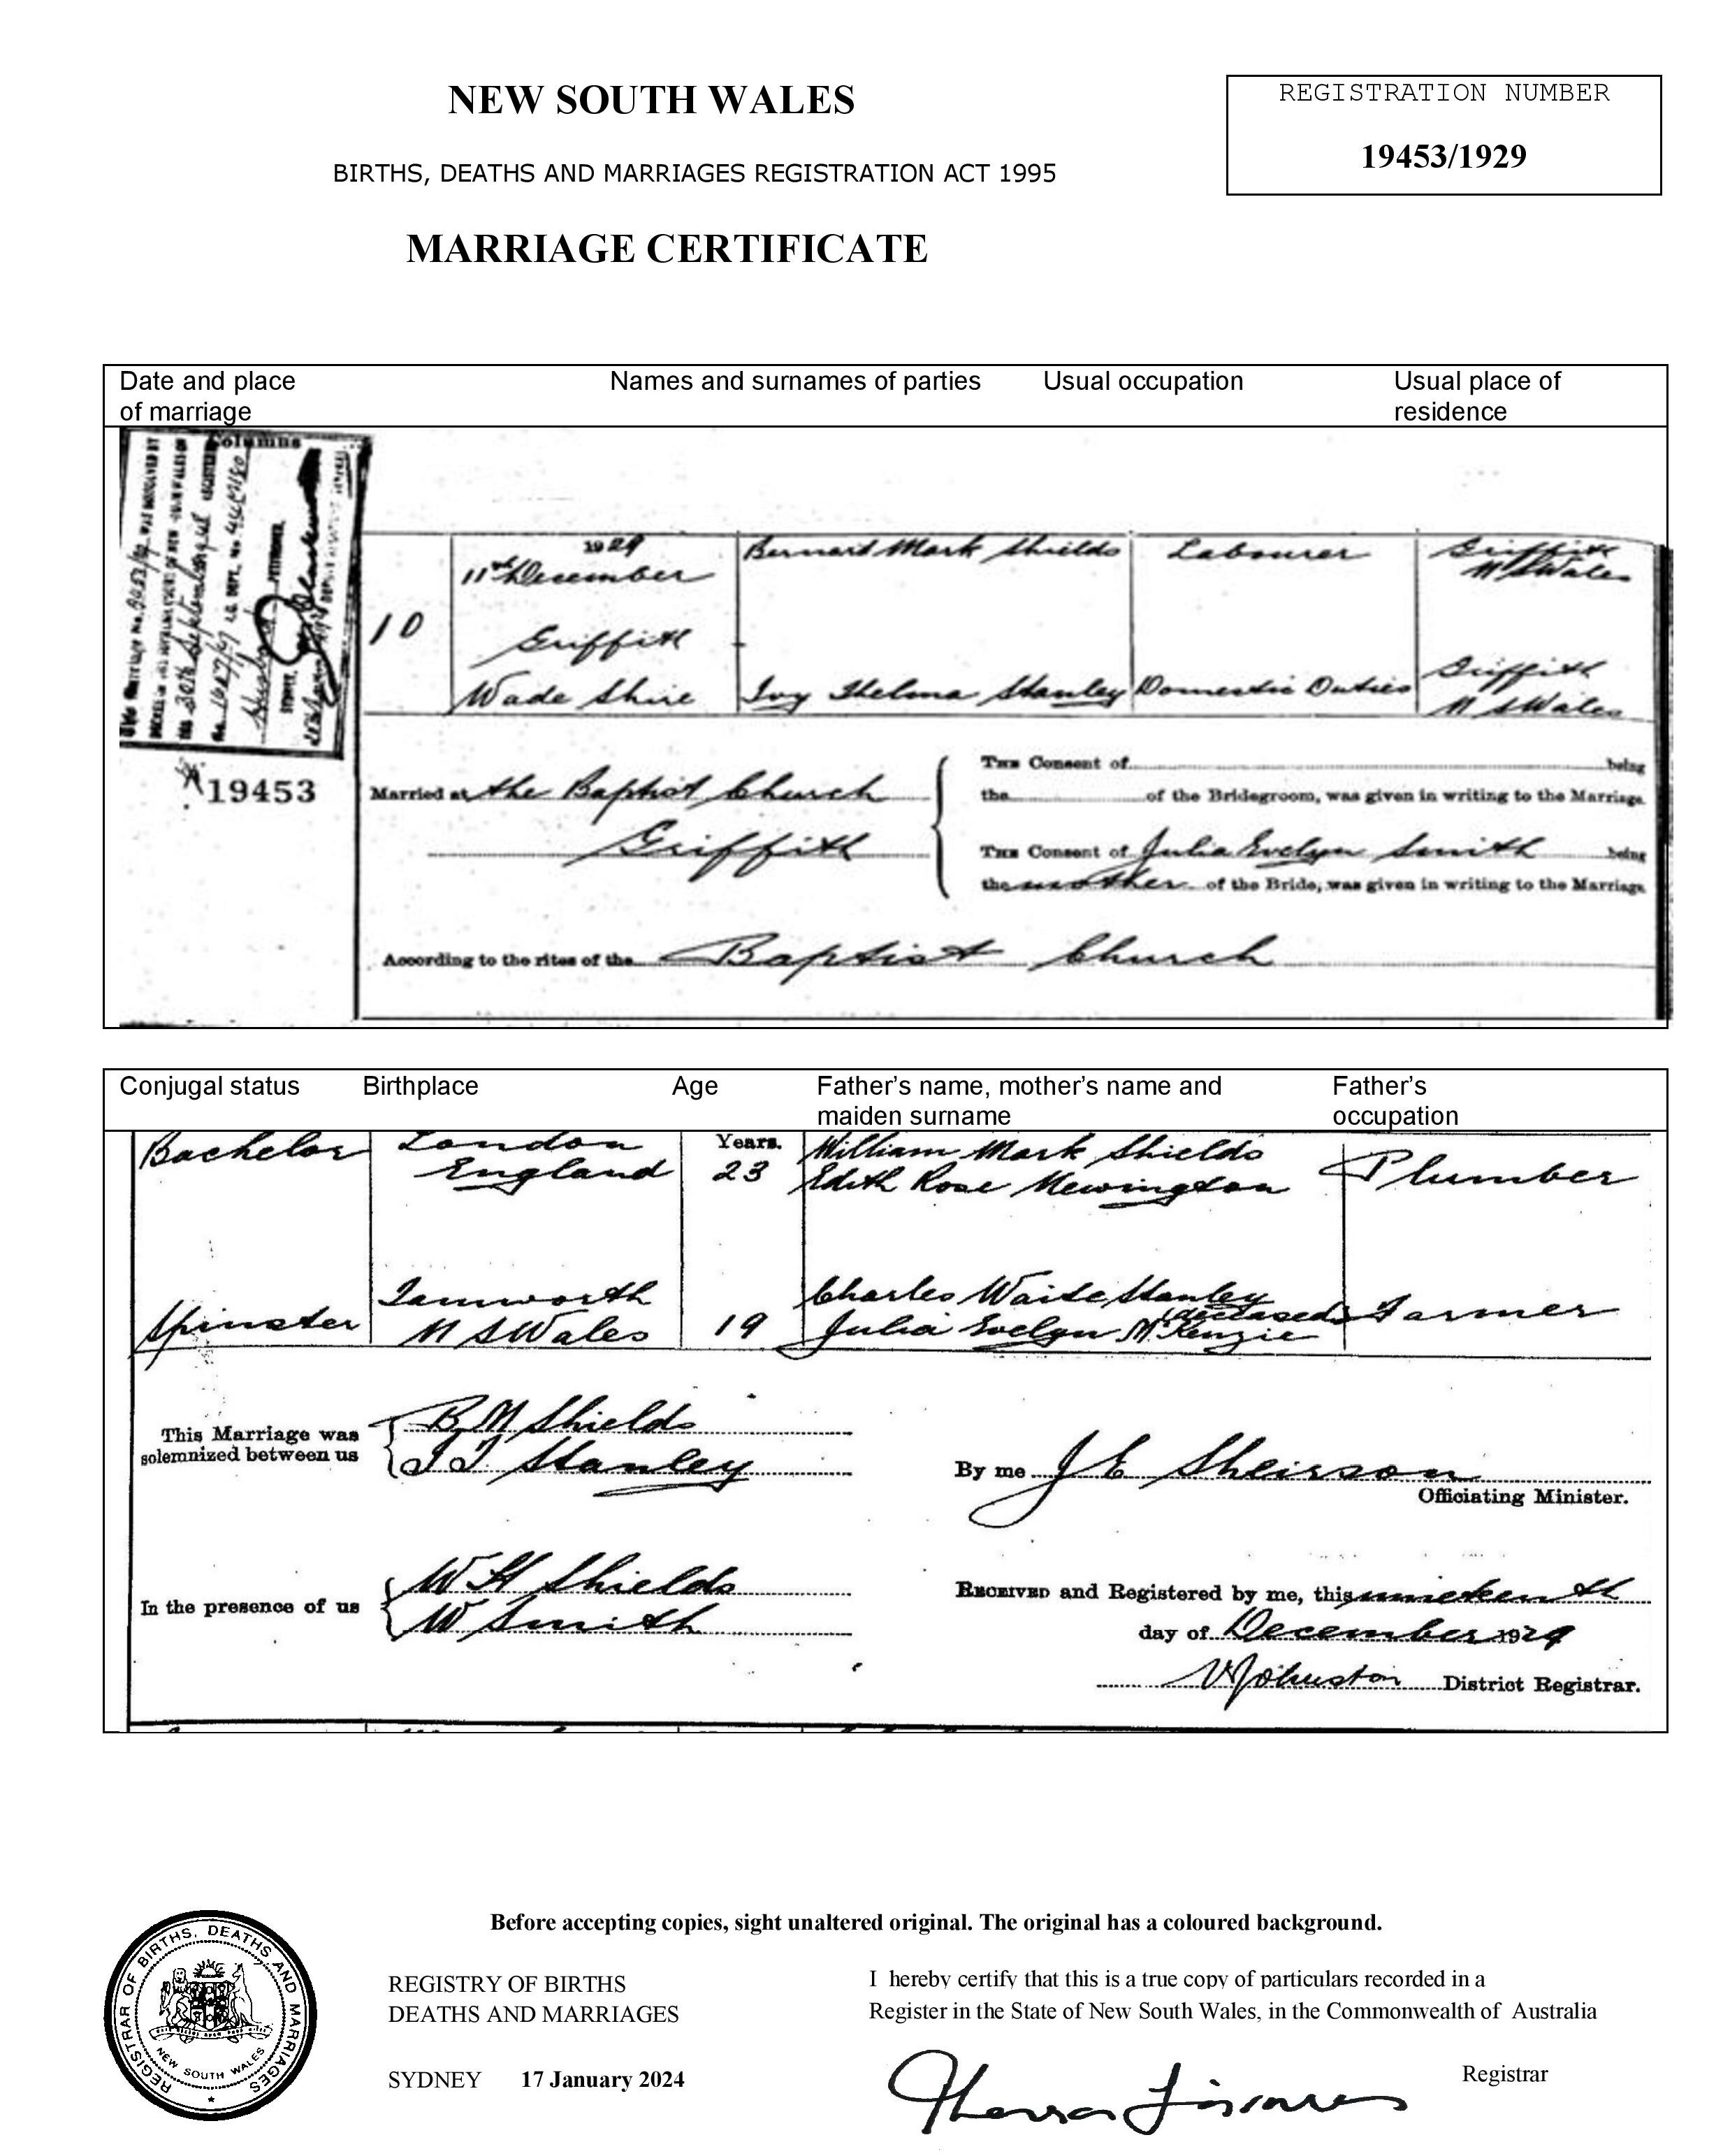 NEW SOUTH WALES
REGISTRATION NUMBER
19453/1929
BIRTHS, DEATHS AND MARRIAGES REGISTRATION ACT 1995
MARRIAGE CERTIFICATE
Date and place of marriage
Names and surnames of parties
Usual occupation
Usual place of residence
Columns
This Marriage No. WAS DISSOLVED BY
DECREE IN
THE 30th September
No.
PETITIONER.
10
1929
11th December
Griffith
Wade Shire
Bernard Mark Shields
Labourer
Griffith
N S Wales
Ivy Thelma Stanley
Domestic Duties
Griffith
N S Wales
19453
Married at the Baptist Church
Griffith
THE Consent of being
the of the Bridegroom, was given in writing to the Marriage.
THE Consent of Julia Evelyn Smith being
the mother of the Bride, was given in writing to the Marriage.
According to the rites of the Baptist Church
Conjugal status
Birthplace
Age
Father's name, mother's name and maiden surname
Father's occupation
Bachelor
London
England
Years.
23
William Mark Shields
Edith Rose Mewington
Plumber
Spinster
Tamworth
N S Wales
19
Charles Waite Stanley
(deceased)
Julia Evelyn McKenzie
Farmer
This Marriage was
solemnized between us
B M Shields
I T Stanley
By me J E
Officiating Minister.
In the presence of us
W H Shields
W Smith
RECEIVED and Registered by me, this nineteenth
day of December 1929
Johnston District Registrar.
Before accepting copies, sight unaltered original. The original has a coloured background.
REGISTRAR OF BIRTHS, DEATHS AND MARRIAGES
NEW SOUTH WALES
REGISTRY OF BIRTHS
DEATHS AND MARRIAGES
SYDNEY 17 January 2024
I hereby certify that this is a true copy of particulars recorded in a
Register in the State of New South Wales, in the Commonwealth of Australia
Registrar